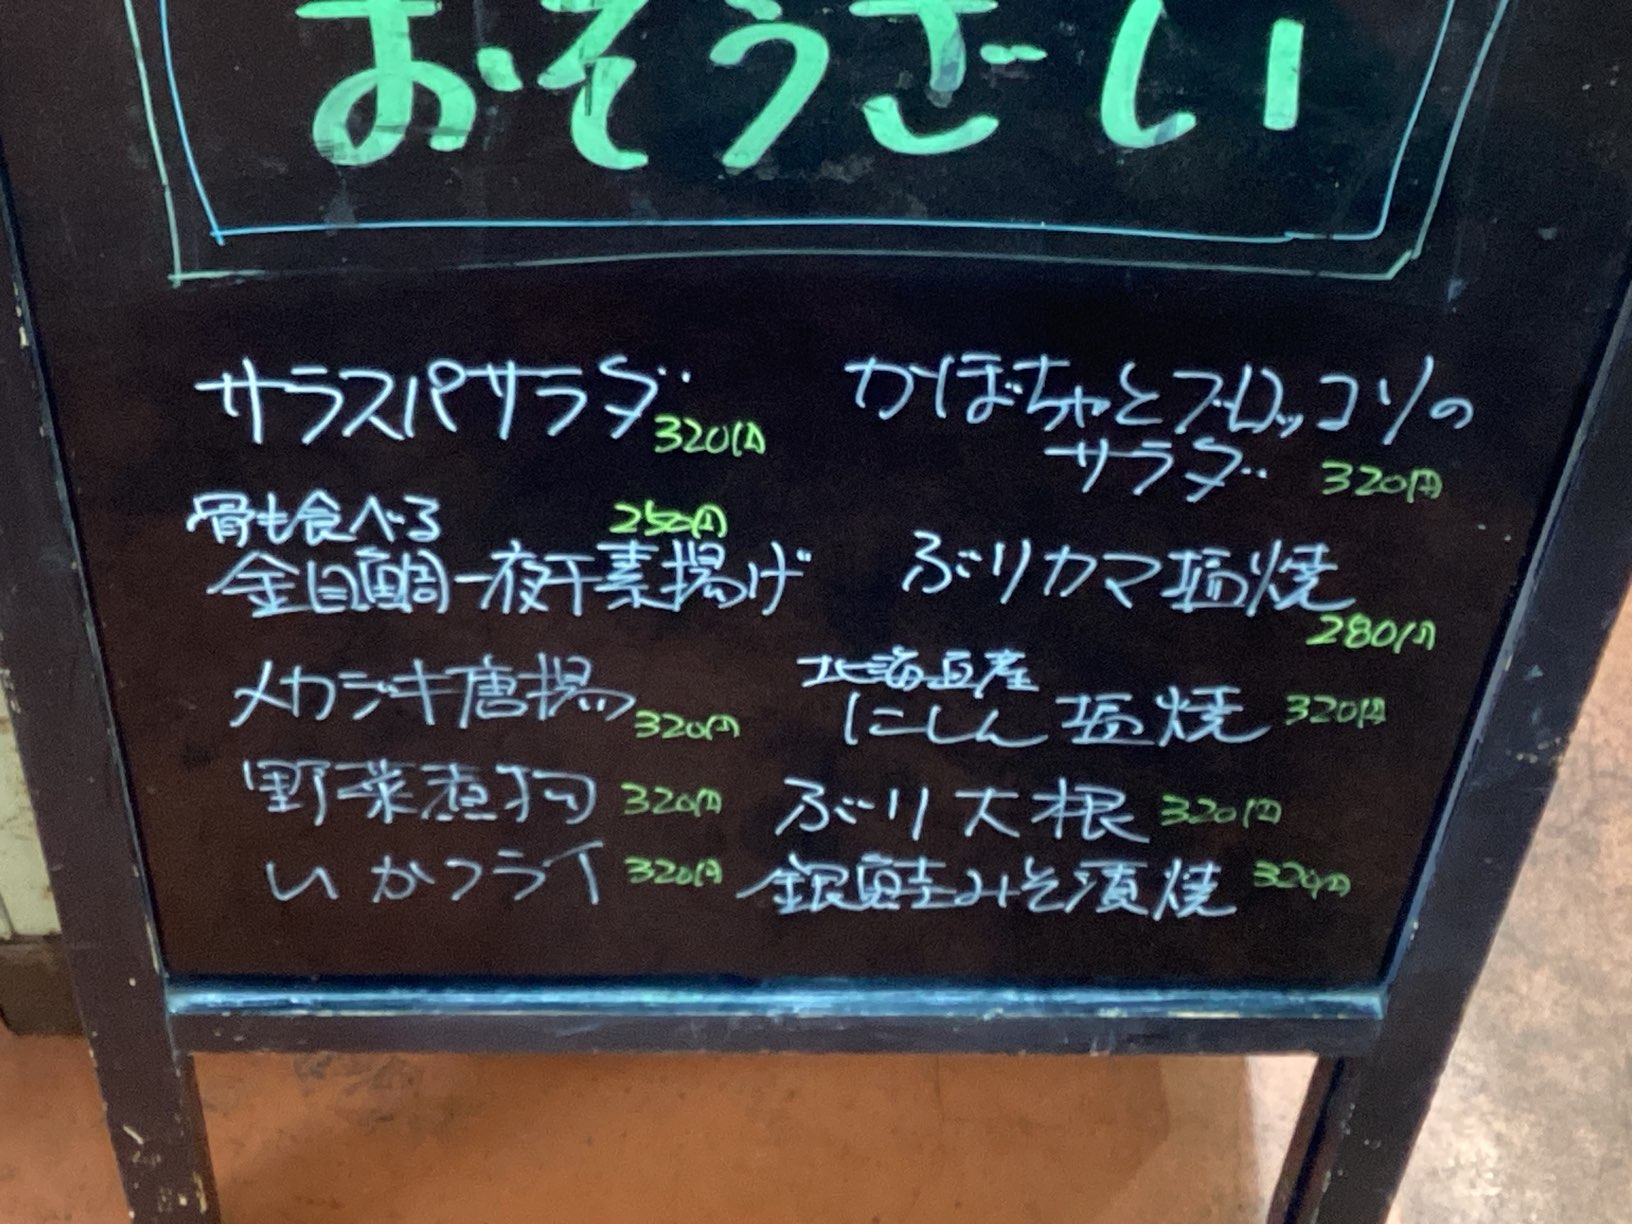 おそうざい
サラスパサラダ 320円
骨も食べる 250円
金目鯛一夜干素揚げ
メカジキ唐揚 320円
野菜煮物 320円
いかフライ 320円
かぼちゃとブロッコリの
サラダ 320円
ぶりカマ塩焼
280円
北海道産
にしん塩焼 320円
ぶり大根 320円
銀鮭みそ漬焼 320円